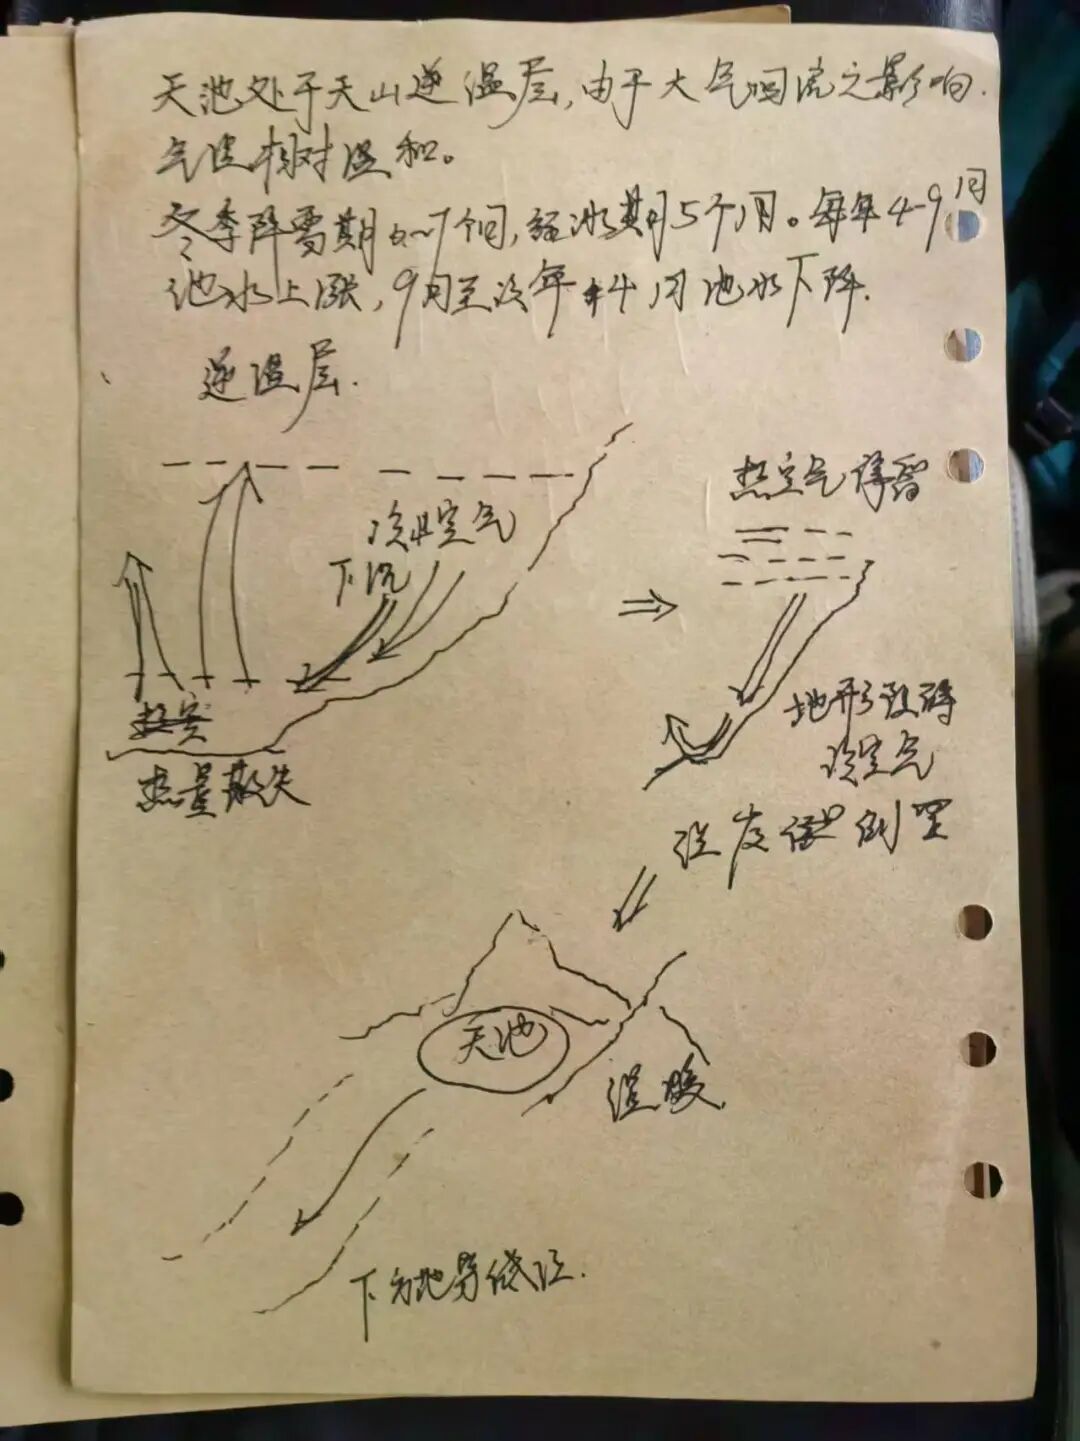 天池处于天山逆温层,由于大气回流之影响.
气温相对温和。
冬季降雪期6~7个月,结冰期5个月。每年4-9月
池水上涨,9月至次年4月池水下降.
逆温层.
冷空气
下沉
热量散失
⇒
热空气停留
地形阻碍
冷空气
温度倒置
天池
温暖.
下方地势低